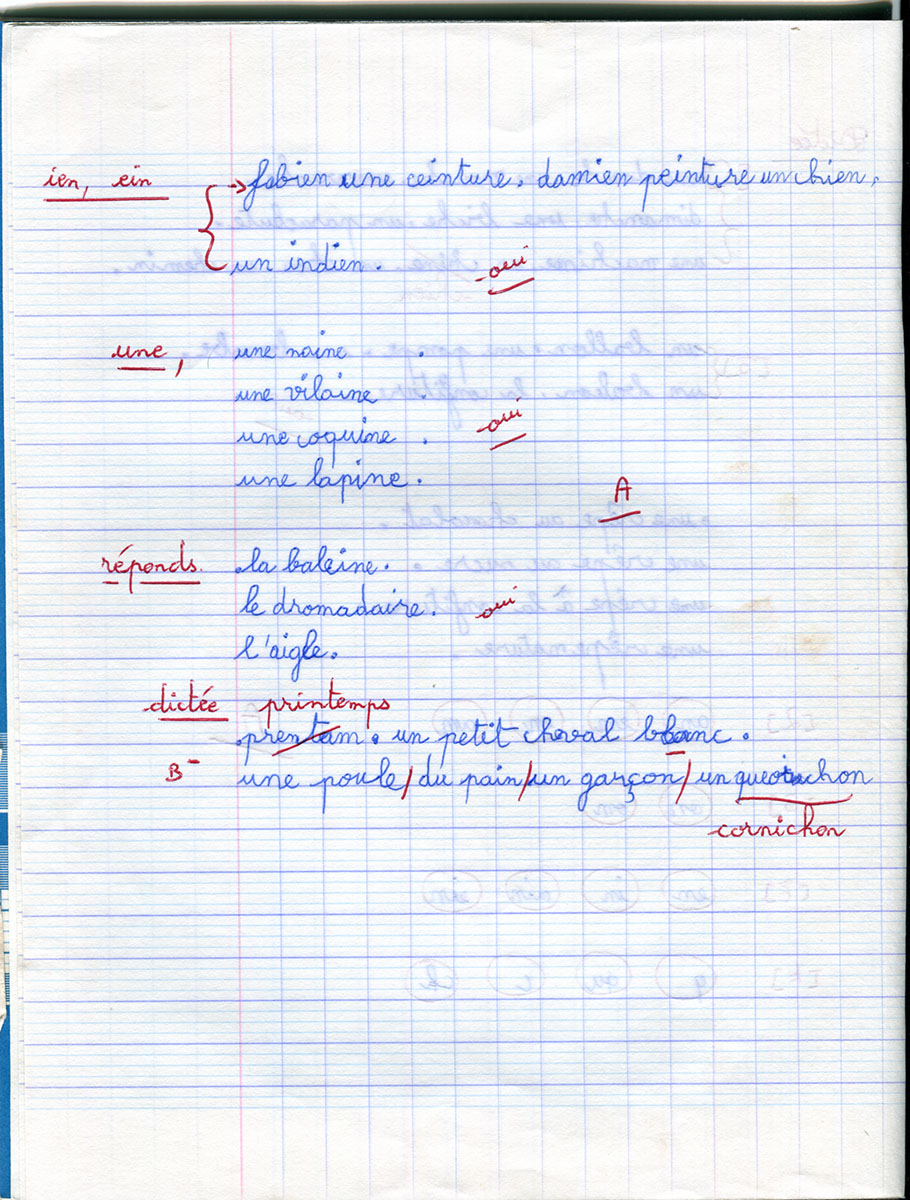 ien, ein fabien une ceinture. damien peinture un chien.
un indien. oui
une, une naine .
une vilaine .
une coquine . oui
une lapine.
A
réponds. la baleine.
le dromadaire. oui
l'aigle.
dictée printemps
prentam. un petit cheval blanc.
B- une poule/du pain/un garçon/un
cornichon